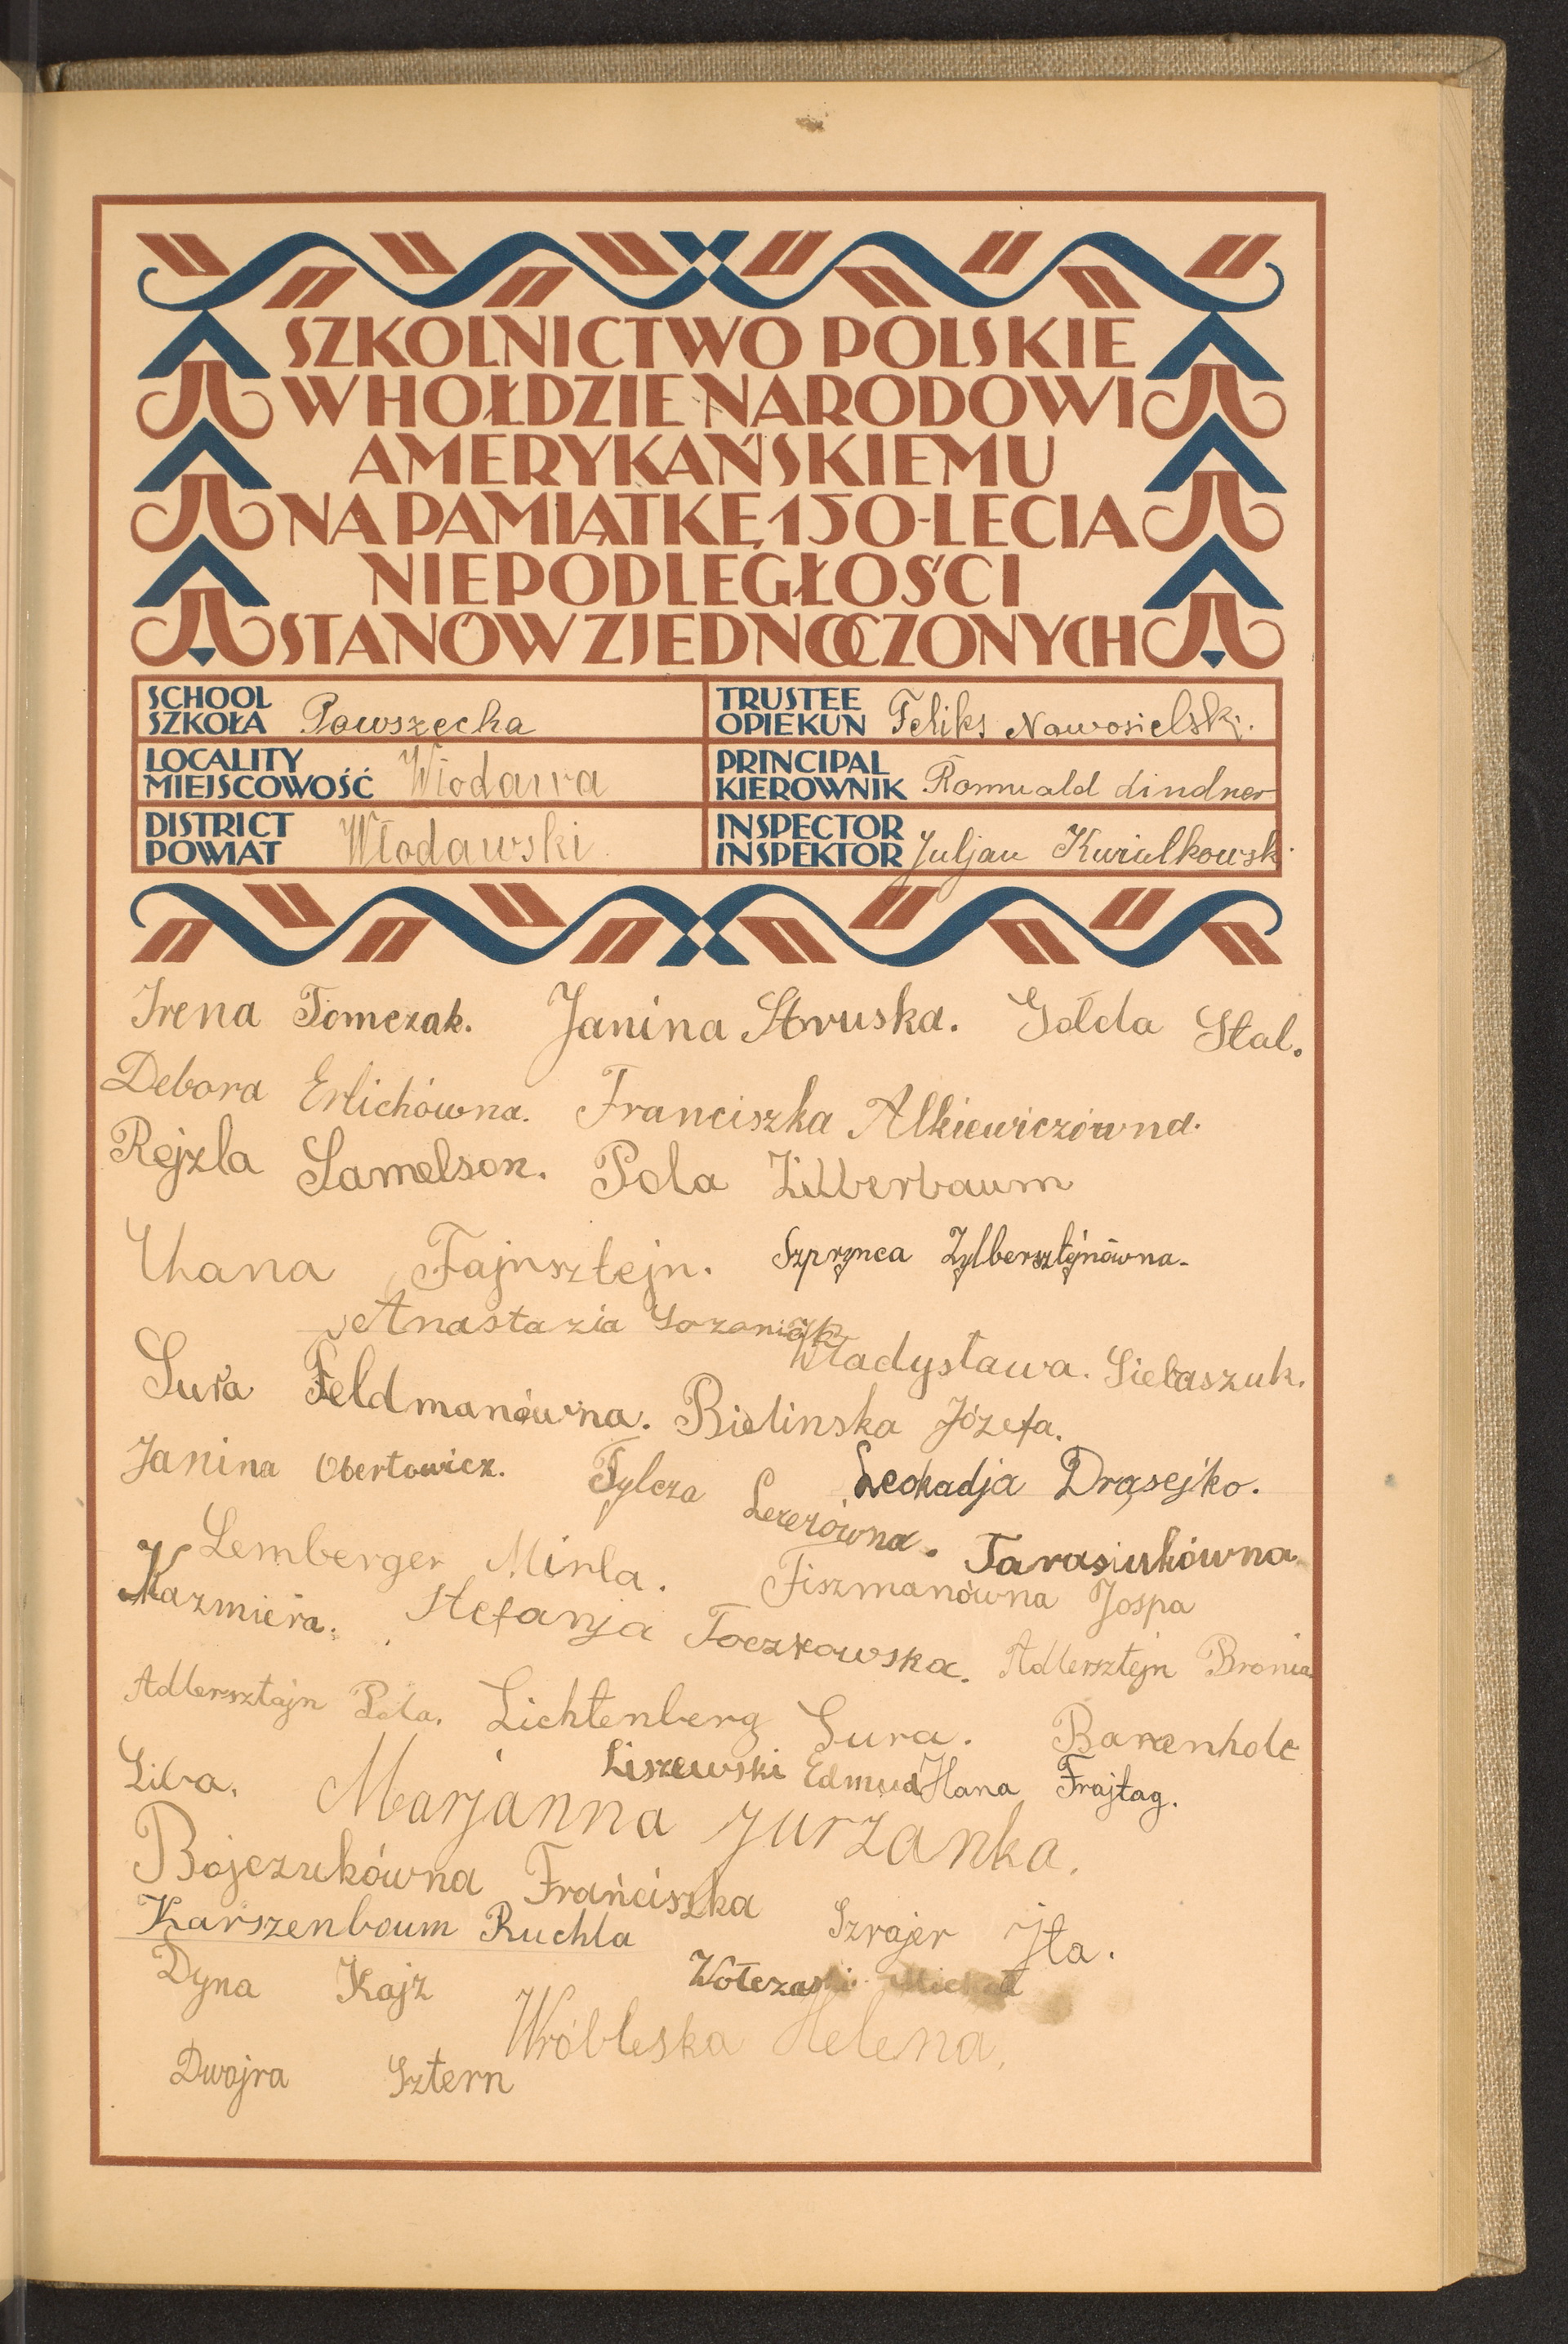 SZKOLNICTWO POLSKIE
W HOŁDZIE NARODOWI
AMERYKAŃSKIEMU
NA PAMIĄTKĘ 150-LECIA
NIEPODLEGŁOŚCI
STANÓW ZJEDNOCZONYCH
SCHOOL
SZKOŁA Powszecha
TRUSTEE
OPIEKUN Feliks Nowosielski.
LOCALITY
MIEJSCOWOŚĆ Włodawa
PRINCIPAL
KIEROWNIK Romuald Lindner
DISTRICT
POWIAT Włodawski
INSPECTOR
INSPEKTOR Juljan
Irena Tomczak. Janina Struska. Gołda Stal.
Debora Erlichówna. Franciszka Alkiewiczówna.
Rejzla Samelson. Pola Zilberbaum
Chana Fajnsztejn. Szprynca Zylbersztejnówna.
Anastazia
Władysława. Sielaszuk.
Sura Feldmanówna. Bielinska Józefa.
Janina Obertowicz. Leokadja Drąsejko.
Tylcza Lererówna. Tarasiukówna
Lemberger Mirla. Fiszmanówna Jospa
Kazmiera. Stefanja Toczkowska. Adlersztejn Bronia
Adlersztajn Pola. Lichtenberg Sura. Barenholc
Liba. Liszewski Edmud Hana Frajtag.
Marjanna Jurzanka.
Bojczukówna Franciszka Szrajer Jta.
Karszenboum Ruchla
Dyna Kajz
Wróbleska Helena.
Dwojra Sztern